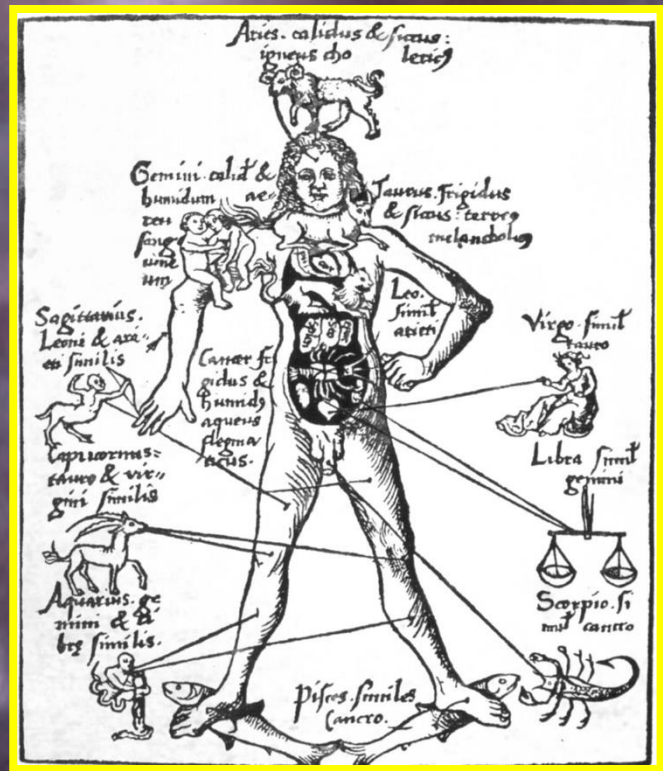 Aries. calidus & siccus:
igneus cho lericꝰ
Gemini. calid &
humidum
ae-
reu
sang
uine
um
Taurus. frigidus
& siccus: terreꝰ
melancholicꝰ
Leo.
simil
arieti
Sagittarius.
Leoni & ari-
eti similis
Cancer fri
gidus &
humidꝰ
aqueus
flegma
ticus.
Virgo. simil
tauro
Capricornus-
tauro & vir-
gini similis
Libra simil
gemini
Aquarius. ge
mini & li
brę similis.
Scorpio. si
mil cancro
Pisces. similes
Cancro.